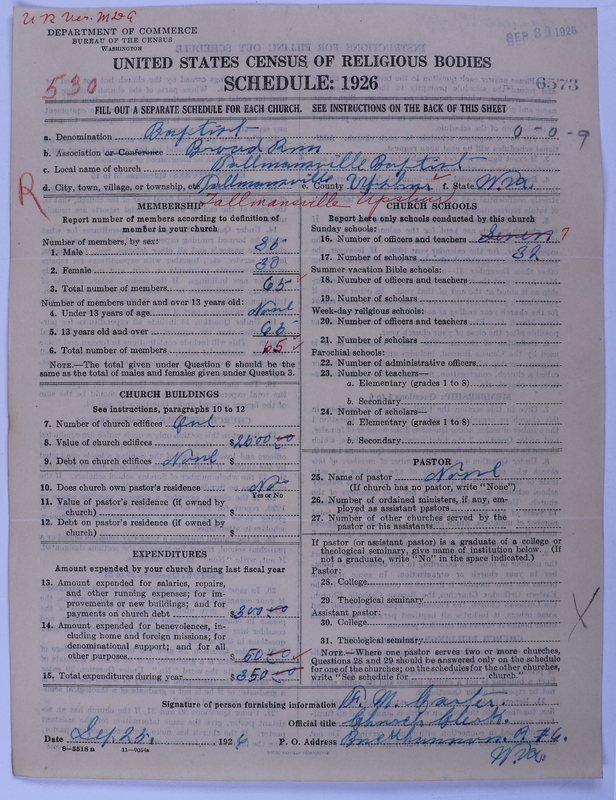 U. B. Ver. M D G
DEPARTMENT OF COMMERCE
BUREAU OF THE CENSUS
WASHINGTON
SEP 28 1926
UNITED STATES CENSUS OF RELIGIOUS BODIES
SCHEDULE: 1926
530
6573
FILL OUT A SEPARATE SCHEDULE FOR EACH CHURCH. SEE INSTRUCTIONS ON THE BACK OF THIS SHEET
a. Denomination Baptist 0-0-9
b. Association or Conference Broad Run
c. Local name of church Tallmansville Baptist
d. City, town, village, or township, etc. Tallmansville e. County Upshur f. State W. Va.
R
Tallmansville Upshur
MEMBERSHIP
Report number of members according to definition of
member in your church
Number of members, by sex:
1. Male 35
2. Female 30
3. Total number of members 65
Number of members under and over 13 years old:
4. Under 13 years of age None
5. 13 years old and over 65
6. Total number of members 65
NOTE.—The total given under Question 6 should be the
same as the total of males and females given under Question 3.
CHURCH BUILDINGS
See instructions, paragraphs 10 to 12
7. Number of church edifices One
8. Value of church edifices $2600.00
9. Debt on church edifices None $
10. Does church own pastor's residence? No
Yes or No
11. Value of pastor's residence (if owned by
church) $
12. Debt on pastor's residence (if owned by
church) $
EXPENDITURES
Amount expended by your church during last fiscal year
13. Amount expended for salaries, repairs,
and other running expenses; for im-
provements or new buildings; and for
payments on church debt $300.00
14. Amount expended for benevolences, in-
cluding home and foreign missions; for
denominational support; and for all
other purposes $50.00
15. Total expenditures during year $350.00
CHURCH SCHOOLS
Report here only schools conducted by this church
Sunday schools:
16. Number of officers and teachers Seven 7
17. Number of scholars 32
Summer vacation Bible schools:
18. Number of officers and teachers
19. Number of scholars
Week-day religious schools:
20. Number of officers and teachers
21. Number of scholars
Parochial schools:
22. Number of administrative officers
23. Number of teachers—
a. Elementary (grades 1 to 8)
b. Secondary
24. Number of scholars—
a. Elementary (grades 1 to 8)
b. Secondary
PASTOR
25. Name of pastor None
(If church has no pastor, write "None")
26. Number of ordained ministers, if any, em-
ployed as assistant pastors
27. Number of other churches served by the
pastor or his assistants
If pastor (or assistant pastor) is a graduate of a college or
theological seminary, give name of institution below. (If
not a graduate, write "No" in the space indicated.)
Pastor:
28. College
29. Theological seminary
Assistant pastor:
30. College
31. Theological seminary
NOTE.—Where one pastor serves two or more churches,
Questions 28 and 29 should be answered only on the schedule
for one of the churches; on the schedules for the other churches,
write "See schedule for church."
Signature of person furnishing information M. Carter
Official title Church Clerk.
Date Sep. 25, 1926 P. O. Address Buckhannon R #6.
W Va.
8—5518 a 11—9051a